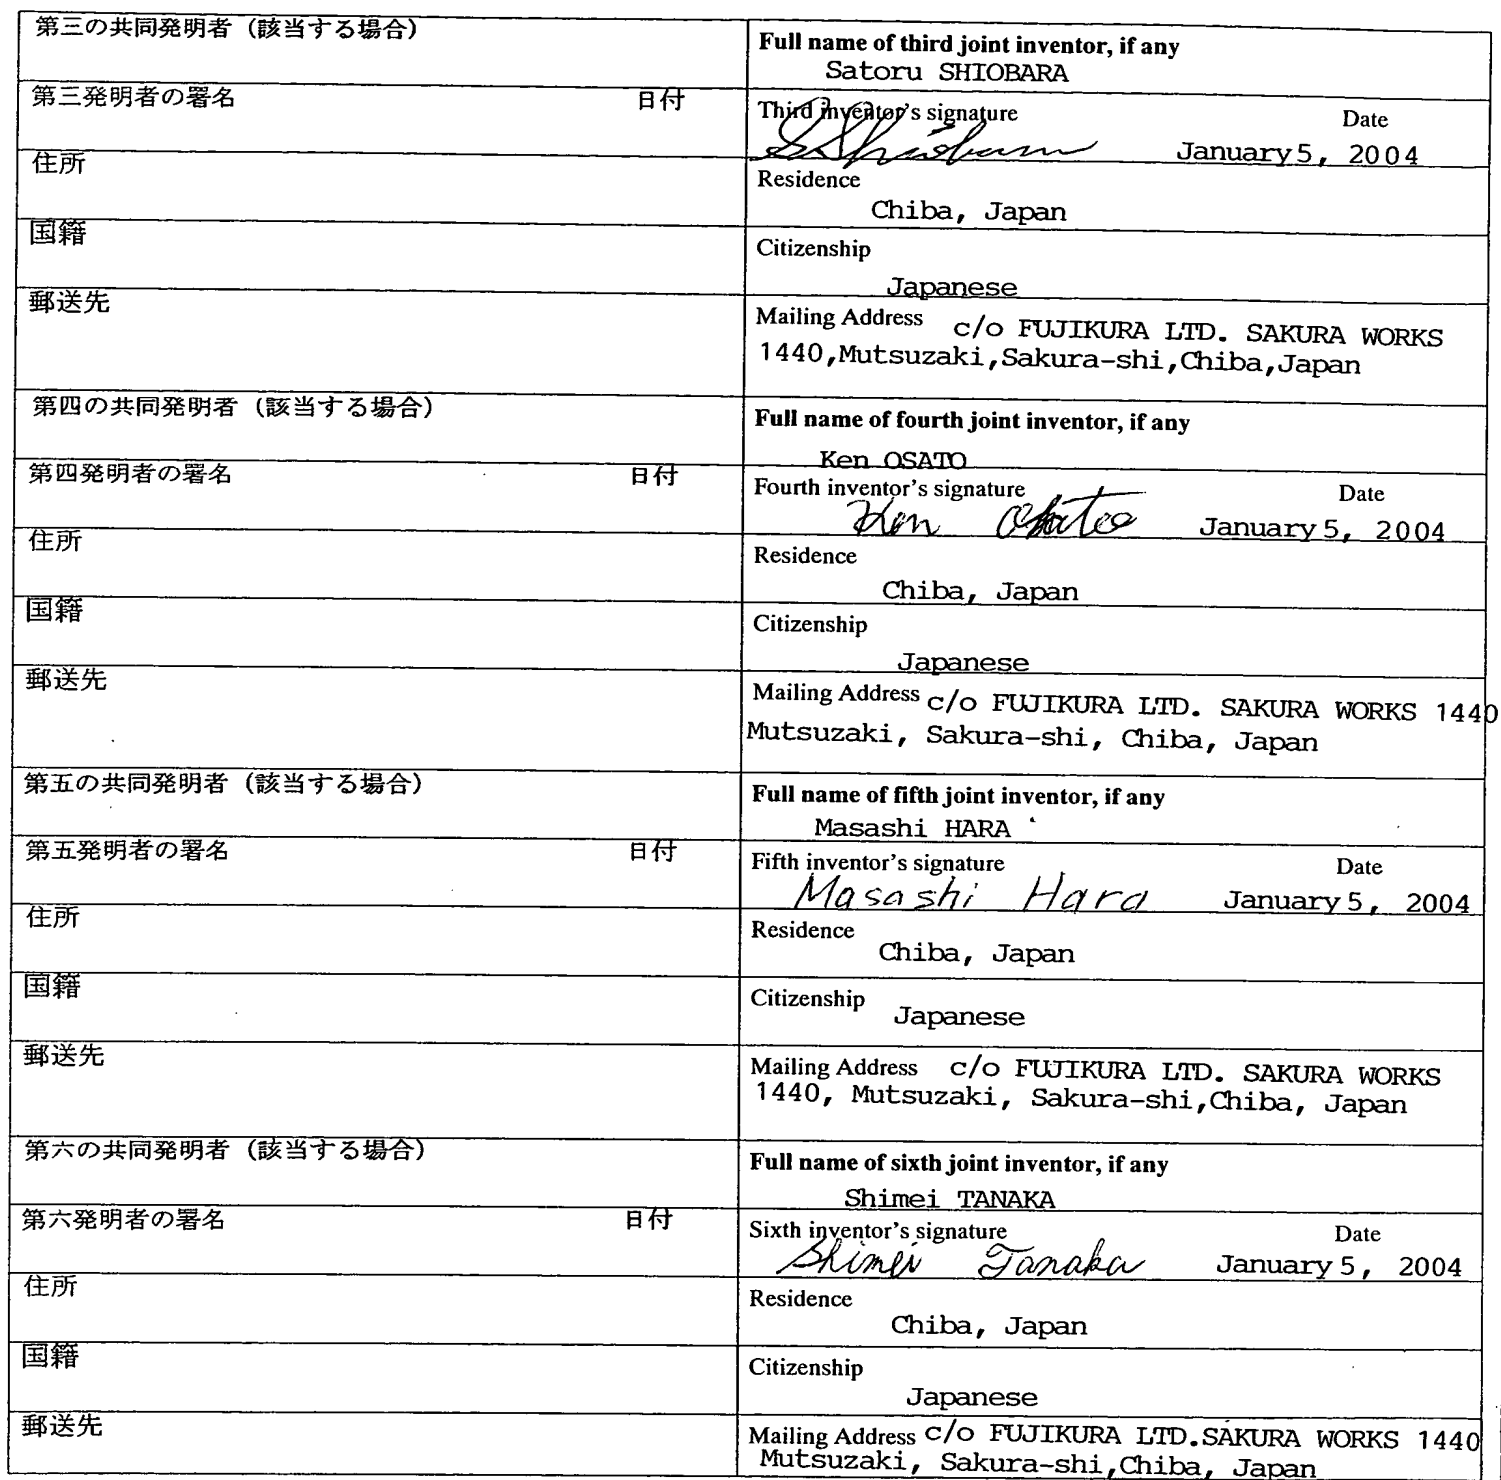 第三の共同発明者（該当する場合）
Full name of third joint inventor, if any
Satoru SHIOBARA
第三発明者の署名 日付
Third inventor's signature Date
S. Shiobara January 5, 2004
住所
Residence
Chiba, Japan
国籍
Citizenship
Japanese
郵送先
Mailing Address c/o FUJIKURA LTD. SAKURA WORKS
1440,Mutsuzaki,Sakura-shi,Chiba,Japan
第四の共同発明者（該当する場合）
Full name of fourth joint inventor, if any
Ken OSATO
第四発明者の署名 日付
Fourth inventor's signature Date
Ken Osato January 5, 2004
住所
Residence
Chiba, Japan
国籍
Citizenship
Japanese
郵送先
Mailing Address c/o FUJIKURA LTD. SAKURA WORKS 1440
Mutsuzaki, Sakura-shi, Chiba, Japan
第五の共同発明者（該当する場合）
Full name of fifth joint inventor, if any
Masashi HARA
第五発明者の署名 日付
Fifth inventor's signature Date
Masashi Hara January 5, 2004
住所
Residence
Chiba, Japan
国籍
Citizenship
Japanese
郵送先
Mailing Address c/o FUJIKURA LTD. SAKURA WORKS
1440, Mutsuzaki, Sakura-shi,Chiba, Japan
第六の共同発明者（該当する場合）
Full name of sixth joint inventor, if any
Shimei TANAKA
第六発明者の署名 日付
Sixth inventor's signature Date
Shimei Tanaka January 5, 2004
住所
Residence
Chiba, Japan
国籍
Citizenship
Japanese
郵送先
Mailing Address c/o FUJIKURA LTD.SAKURA WORKS 1440
Mutsuzaki, Sakura-shi,Chiba, Japan